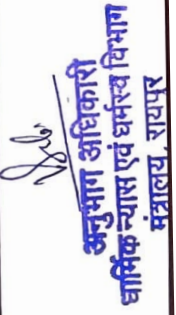 अनुभाग अधिकारी
धार्मिक न्यास एवं धर्मस्व विभाग
मंत्रालय, रायपुर